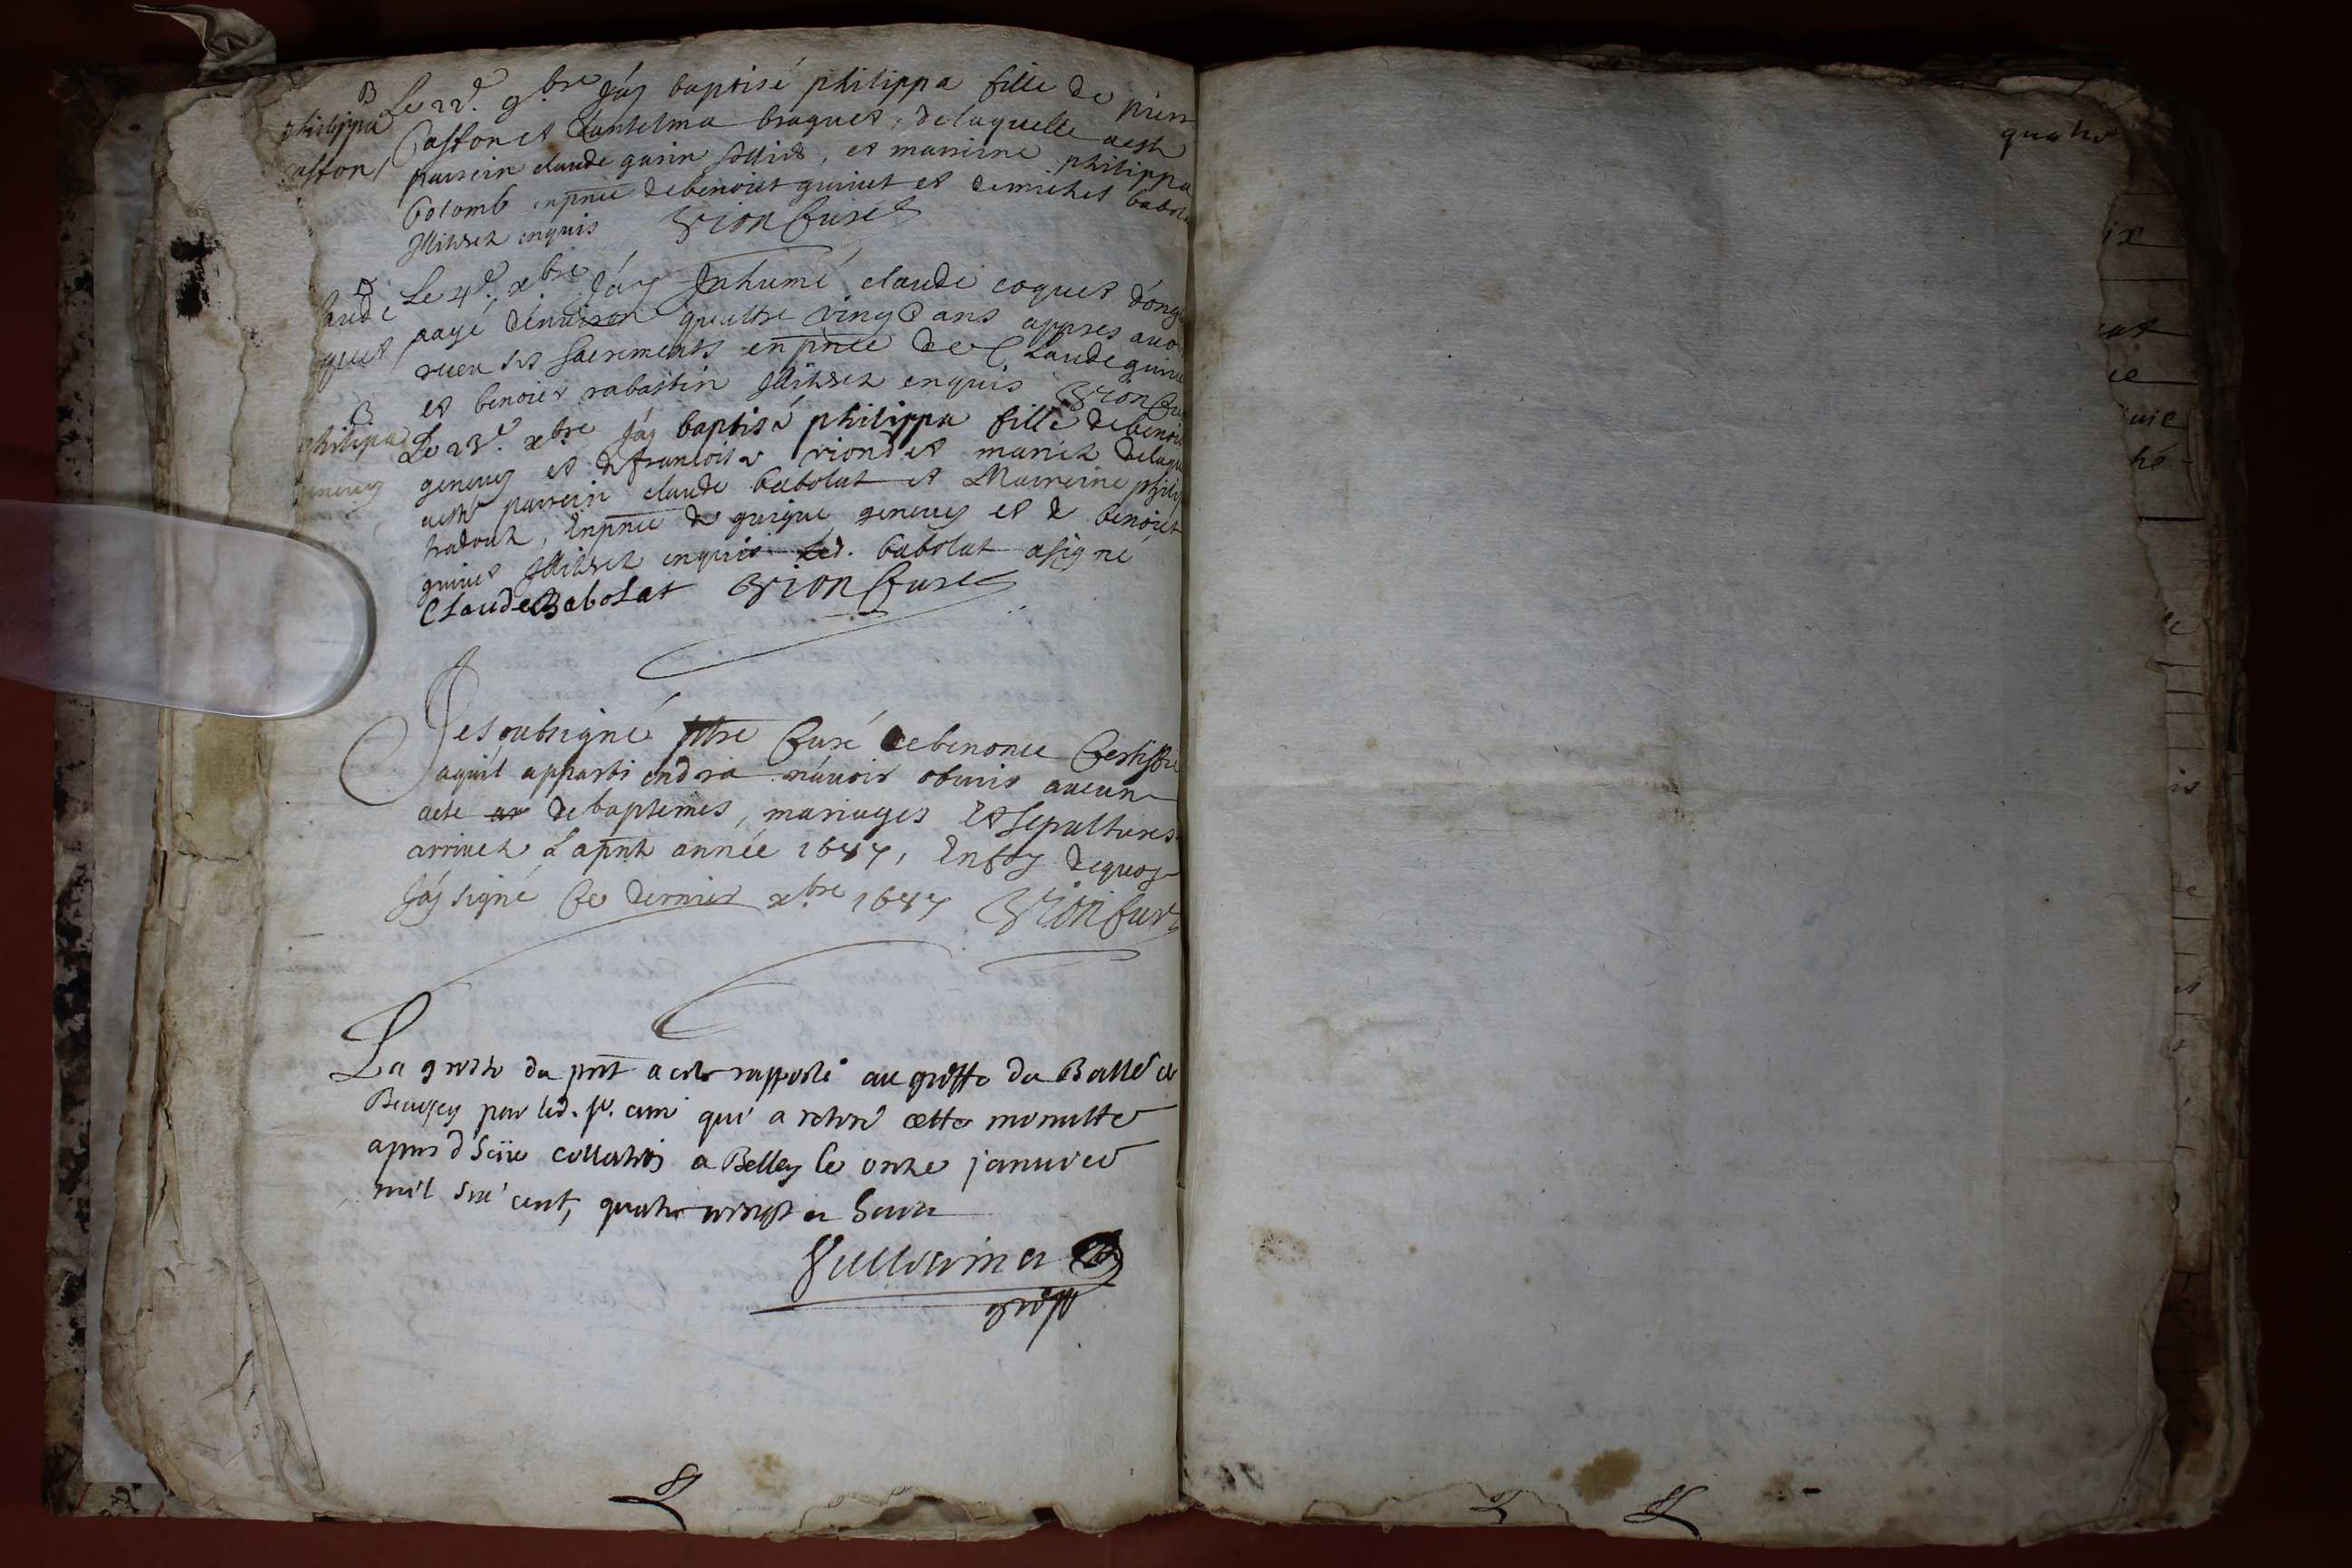 B
philippa
aston
Le 22e. 9bre Jáy baptisé philippa fille de pierr
Caston et dantelma braguet, delaquelle aesté
parrein claude garin illitré, et marreine philippa
Colomb enpnce debenoist guinet et demichel babol
illitrez enquis Brion Curé
claude
quet
Le 4e. xbre Jáy Inhumé claude coquet d'ong
aagé denuiron quattre vingt ans appres auo
receu ses sacrements en pnce de Claude guine
et benoiet rabastin illitrez enquis Brion Cu
B
philippa
geneuey
Le 23e. xbre Jáy baptisé philippa fille debenoi
geneuey et de francoise riondet mariez delaqu
aesté parrein claude babolat et Marreine philip
, Enpnce de guigue geneuey et de benoiet
guinet illitrez enquis Led. babolat asigné
Claude Babolat Brion Curé
Jesoubsigné ptre Curé debenonce Certiffie
aquil appartiendra n'auoir obmis aucun
acte debaptemes, mariages Et sepultures
arriuez Lapnte année 1687, Enfoy dequoy
Jáy signé Ce dernier xbre 1687 Brion Curé
La grosse du pnt a este rapporté au greffe du Balle de
Beugey par led. sr. curé qui a retiré cette minutte
apres d collation a Belley le onze januier
mil six cent, quatre vingt et huit
greff
quatre